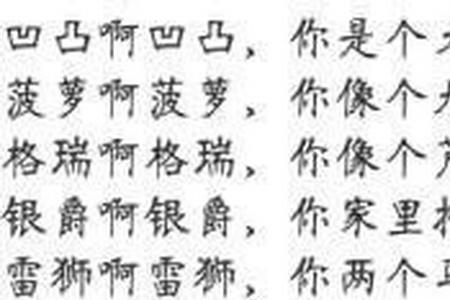 凹凸啊凹凸，你是个
菠萝啊菠萝，你像个
格瑞啊格瑞，你像个
银爵啊银爵，你家里
雷狮啊雷狮，你两个